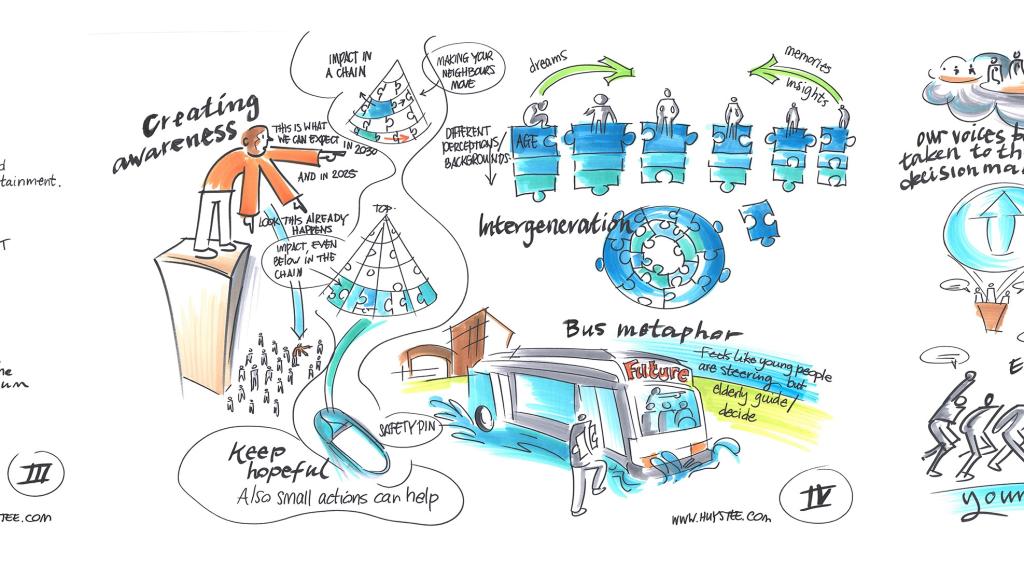 tainment.
III
TEE.COM
Creating
awareness
THIS IS WHAT
WE CAN EXPECT
IN 2030
AND IN 2025
LOOK THIS ALREADY
HAPPENS
IMPACT, EVEN
BELOW IN THE
CHAIN
IMPACT IN
A CHAIN
MAKING YOUR
NEIGHBOURS
MOVE
TOP
SAFETY PIN
Keep
hopeful
Also small actions can help
dreams
memories
insights
DIFFERENT
PERCEPTIONS/
BACKGROUNDS
AGE
Intergeneration
Bus metaphor
Future
Feels like young people
are steering, but
elderly guide/
decide
WWW.HUYSTEE.COM
IV
our voices
taken to
decision